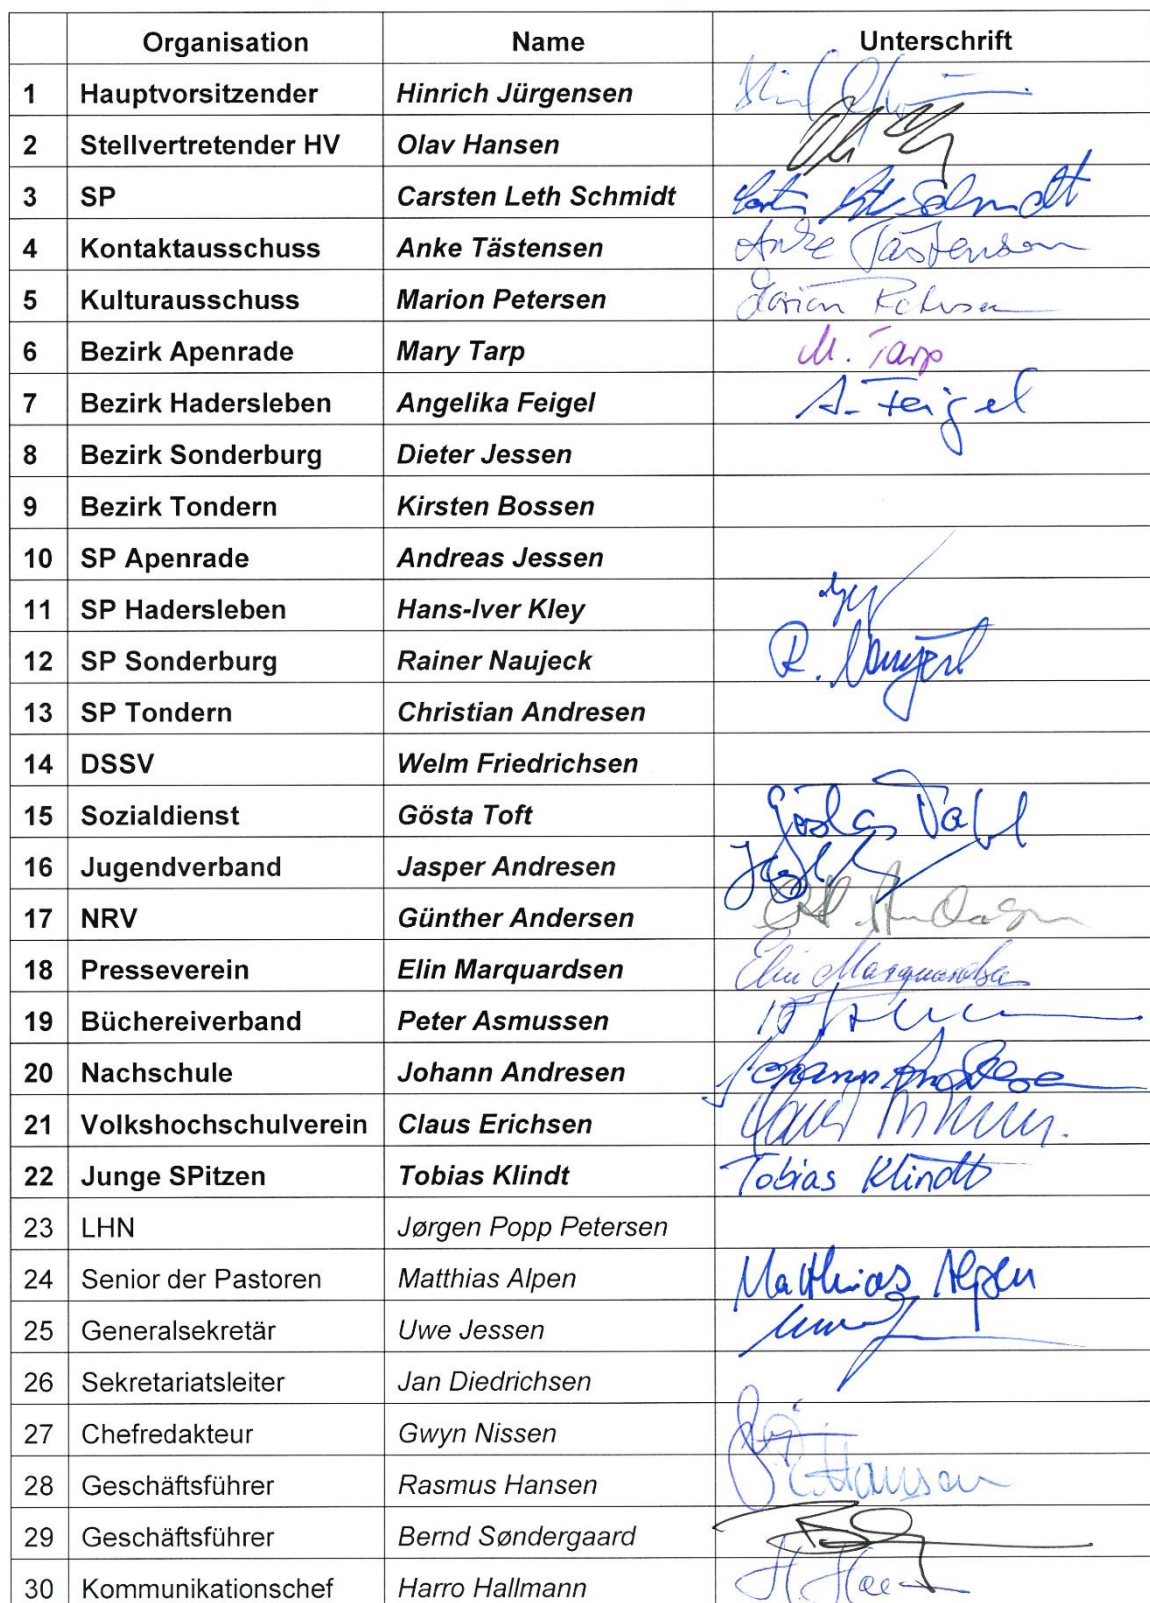 Organisation Name Unterschrift
1 Hauptvorsitzender Hinrich Jürgensen
2 Stellvertretender HV Olav Hansen
3 SP Carsten Leth Schmidt Schmidt
4 Kontaktausschuss Anke Tästensen Anke Tästensen
5 Kulturausschuss Marion Petersen Marion Petersen
6 Bezirk Apenrade Mary Tarp M. Tarp
7 Bezirk Hadersleben Angelika Feigel A. Feigel
8 Bezirk Sonderburg Dieter Jessen
9 Bezirk Tondern Kirsten Bossen
10 SP Apenrade Andreas Jessen
11 SP Hadersleben Hans-Iver Kley
12 SP Sonderburg Rainer Naujeck R. Naujeck
13 SP Tondern Christian Andresen
14 DSSV Welm Friedrichsen
15 Sozialdienst Gösta Toft Gösta Toft
16 Jugendverband Jasper Andresen
17 NRV Günther Andersen
18 Presseverein Elin Marquardsen Elin Marquardsen
19 Büchereiverband Peter Asmussen
20 Nachschule Johann Andresen Johann Andresen
21 Volkshochschulverein Claus Erichsen
22 Junge SPitzen Tobias Klindt Tobias Klindt
23 LHN Jørgen Popp Petersen
24 Senior der Pastoren Matthias Alpen Matthias Alpen
25 Generalsekretär Uwe Jessen
26 Sekretariatsleiter Jan Diedrichsen
27 Chefredakteur Gwyn Nissen
28 Geschäftsführer Rasmus Hansen Hansen
29 Geschäftsführer Bernd Søndergaard
30 Kommunikationschef Harro Hallmann